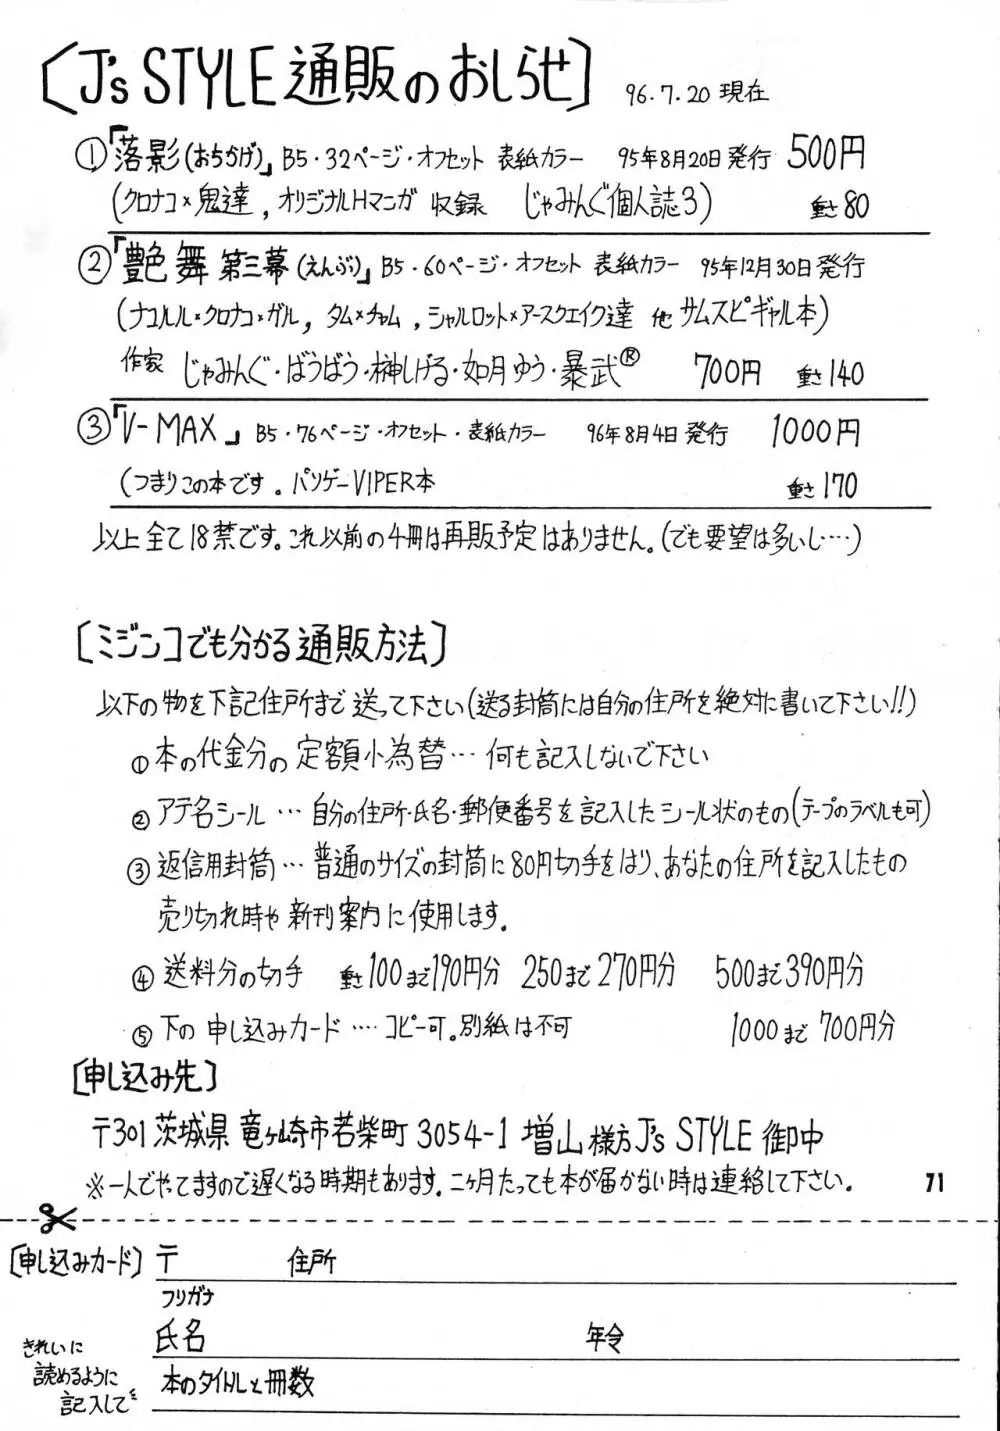 [J's STYLE 通販のおしらせ] 96.7.20 現在
①「落影(おちかげ)」B5・32ページ・オフセット 表紙カラー 95年8月20日発行 500円
(クロナコ×鬼達, オリジナルHマンガ 収録 じゃみんぐ個人誌3) 重さ80
②「艶舞 第三幕(えんぶ)」B5・60ページ・オフセット 表紙カラー 95年12月30日発行
(ナコルル×クロナコ×ガル, タム×チャム, シャルロット×アースクエイク達 他 サムスピギャル本)
作家 じゃみんぐ・ばうばう・榊しげる・如月ゆう・暴武® 700円 重さ140
③「V-MAX」B5・76ページ・オフセット・表紙カラー 96年8月4日発行 1000円
(つまりこの本です。パソゲーVIPER本 重さ170
以上全て18禁です。これ以前の4冊は再販予定はありません。(でも要望は多いし‥‥)
[ミジンコでも分かる通販方法]
以下の物を下記住所まで送って下さい(送る封筒には自分の住所を絶対に書いて下さい!!)
① 本の代金分の定額小為替… 何も記入しないで下さい
② アテ名シール … 自分の住所・氏名・郵便番号を記入したシール状のもの(テープのラベルも可)
③ 返信用封筒… 普通のサイズの封筒に80円切手をはり、あなたの住所を記入したもの
売り切れ時や新刊案内に使用します。
④ 送料分の切手 重さ100まで190円分 250まで270円分 500まで390円分
⑤ 下の申し込みカード ‥‥ コピー可。別紙は不可 1000まで700円分
[申し込み先]
〒301 茨城県竜ヶ崎市若柴町3054-1 増山様方J's STYLE御中
※一人でやってますので遅くなる時期もあります。二ヶ月たっても本が届かない時は連絡して下さい。 71
[申し込みカード] 〒 住所
フリガナ
氏名 年令
きれいに
読めるように
記入してく
本のタイトルと冊数